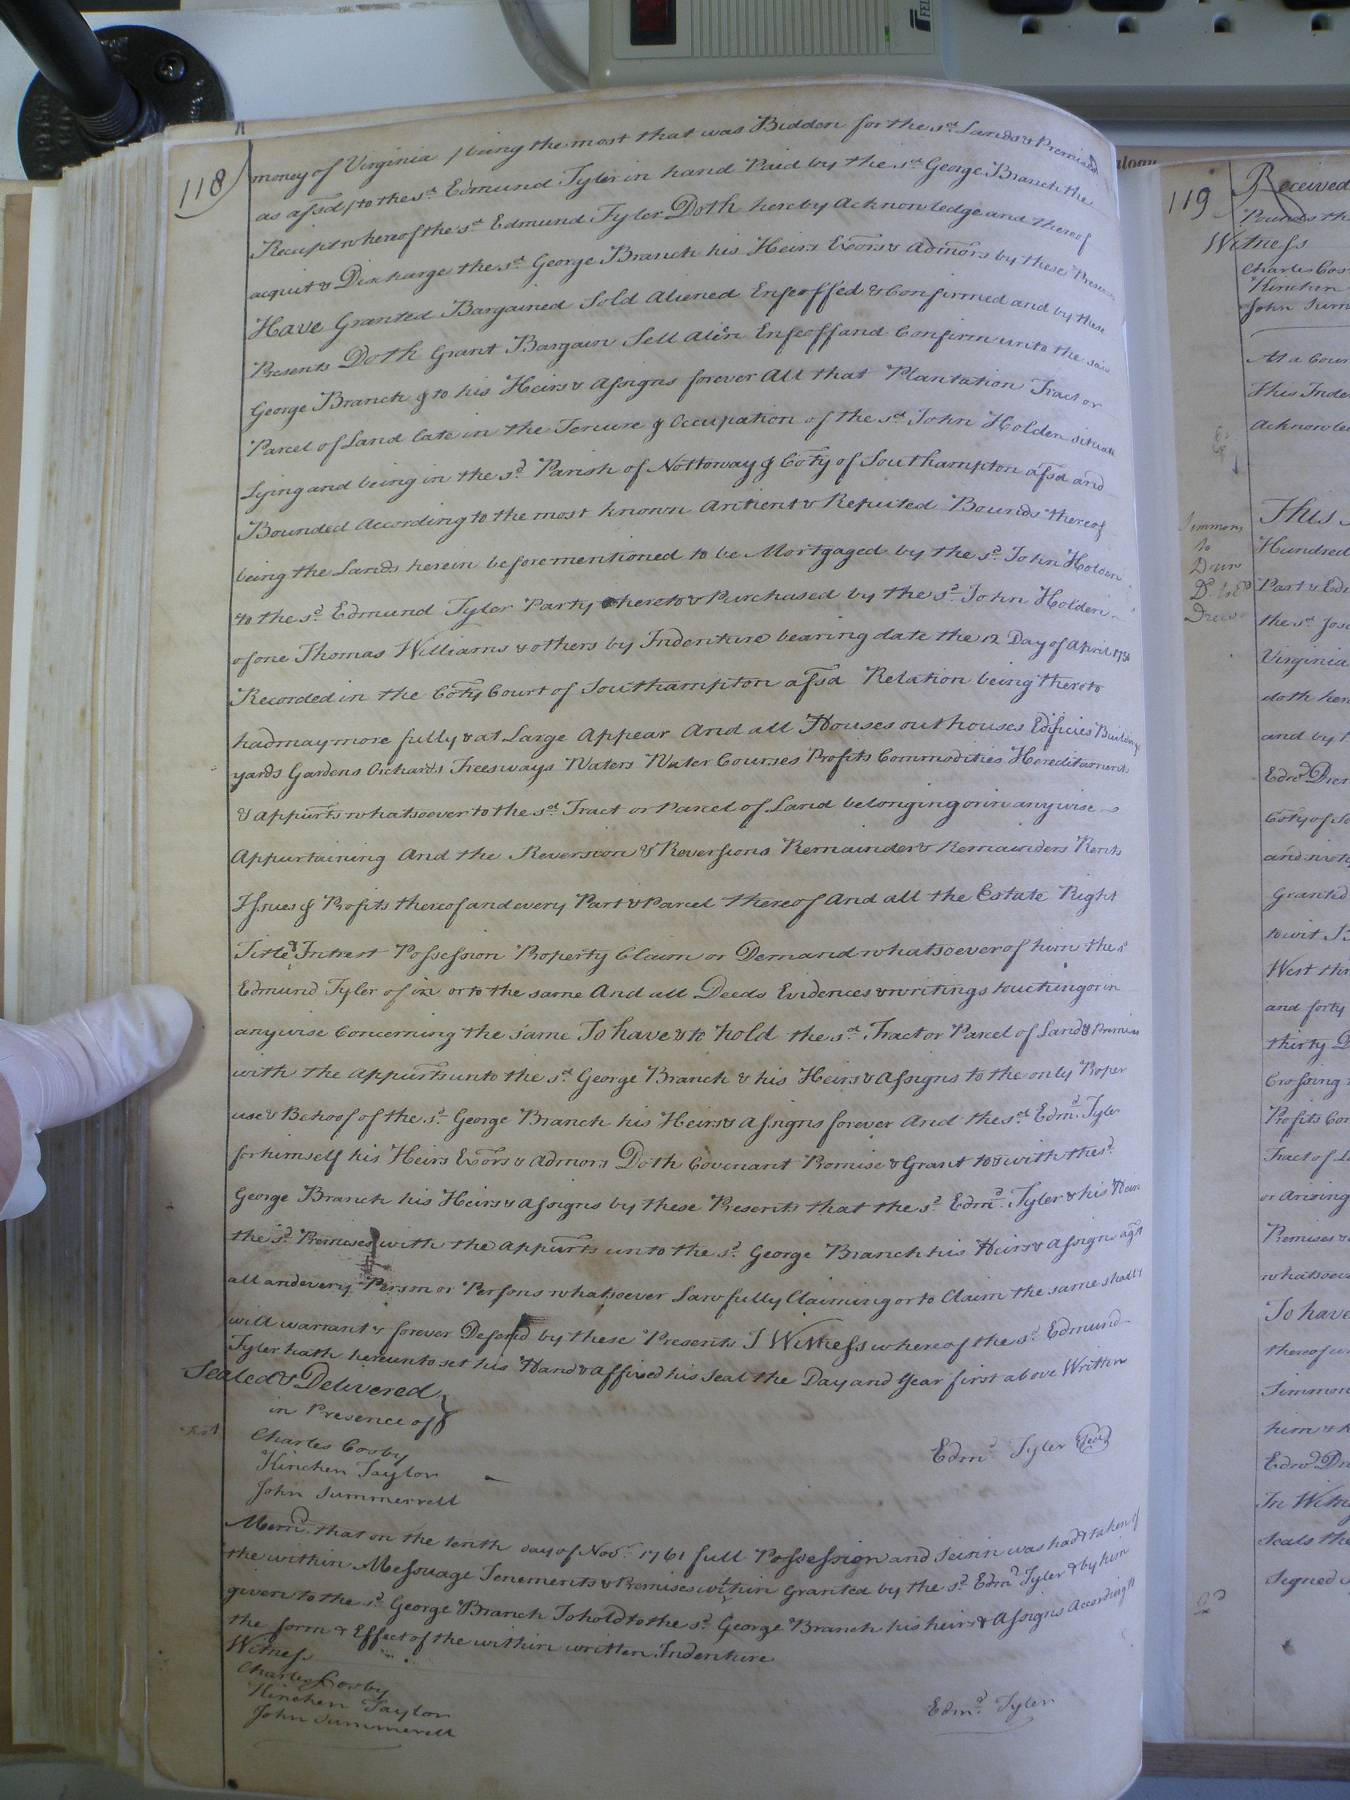 118
money of Virginia / being the most that was Bidden for the sd. Lands & Premises
as afsd / to the sd. Edmund Tyler in hand Paid by the sd. George Branch the
Receipt whereof the sd. Edmund Tyler Doth hereby Acknowledge and thereof
acquit & Discharge the sd. George Branch his Heirs Exors & Admors by these Presents
Have Granted Bargained Sold Aliened Enfeoffed & Confirmed and by these
Presents Doth Grant Bargain Sell Alien Enfeoff and Confirm unto the said
George Branch & to his Heirs & Assigns forever All that Plantation Tract or
Parcel of Land late in the Tenure & Occupation of the sd. John Holden situate
Lying and being in the sd. Parish of Nottoway & Coty of Southampton afsd and
Bounded According to the most known Antient & Reputed Bounds thereof
being the Lands herein before mentioned to be Mortgaged by the sd. John Holden
to the sd. Edmund Tyler Party hereto & Purchased by the sd. John Holden
of one Thomas Williams & others by Indenture bearing date the 12 Day of April
Recorded in the Coty Court of Southampton afsd Relation being thereto
had may more fully & at Large Appear And all Houses outhouses Edificies Buildings
yards Gardens Orchards Trees ways Waters Water Courses Profits Commodities Hereditaments
& appurts whatsoever to the sd. Tract or Parcel of Land belonging or in any wise
Appurtaining And the Reversion & Reversions Remainder & Remainders Rents
Issues & Profits thereof and every Part & Parcel thereof And all the Estate Right
Title & Intrest Possession Property Claim or Demand whatsoever of him the sd
Edmund Tyler of in or to the same And all Deeds Evidences & writings touching or in
any wise Concerning the same To have & to hold the sd. Tract or Parcel of Land & Premises
with the Appurts unto the sd. George Branch & his Heirs & Assigns to the only Proper
use & Behoof of the sd. George Branch his Heirs & Assigns forever And the sd. Edmd. Tyler
for himself his Heirs Exors & Admors Doth Covenant Promise & Grant to & with the sd.
George Branch his Heirs & Assigns by these Presents that the sd. Edmd. Tyler & his Heirs
the sd. Premises with the Appurts unto the sd. George Branch his Heirs & Assigns agst
all and every Person or Persons whatsoever Lawfully Claiming or to Claim the same shall &
will warrant & forever Defend by these Presents I Witness whereof the sd. Edmund
Tyler hath hereunto set his Hand & Affixed his Seal the Day and Year first above Written
Sealed & Delivered
in Presence of
Charles Cosby
Kinchen Taylor
John Summerrell
Edmd. Tyler Seal
Memd. that on the tenth day of Novr. 1761 full Possession and Seisin was had & taken of
the within Messuage Tenements & Premises within Granted by the sd. Edmd. Tyler & by him
given to the sd. George Branch To hold to the sd. George Branch his heirs & Assigns According to
the form & Effect of the within written Indenture
Witness
Charles Cosby
Kinchen Taylor
John Summerell
Edmd. Tyler
119
Received
Pounds
Witness
Charles Cos
Kinchen
John Sum
At a Cour
This Inde
Acknowle
Simmons
to
Drew
Drew
This
Hundred
Part & Ed
the sd. Jos
Virginia
doth her
and by
Edwd. Drew
Coty of So
Granted
to wit
West
and forty
thirty
Crossing
Profits Con
Tract of L
or Arising
Premises
whatsoev
To have
thereof
Simmon
him & h
Edwd. Dr
In Witne
Seals the
Signed